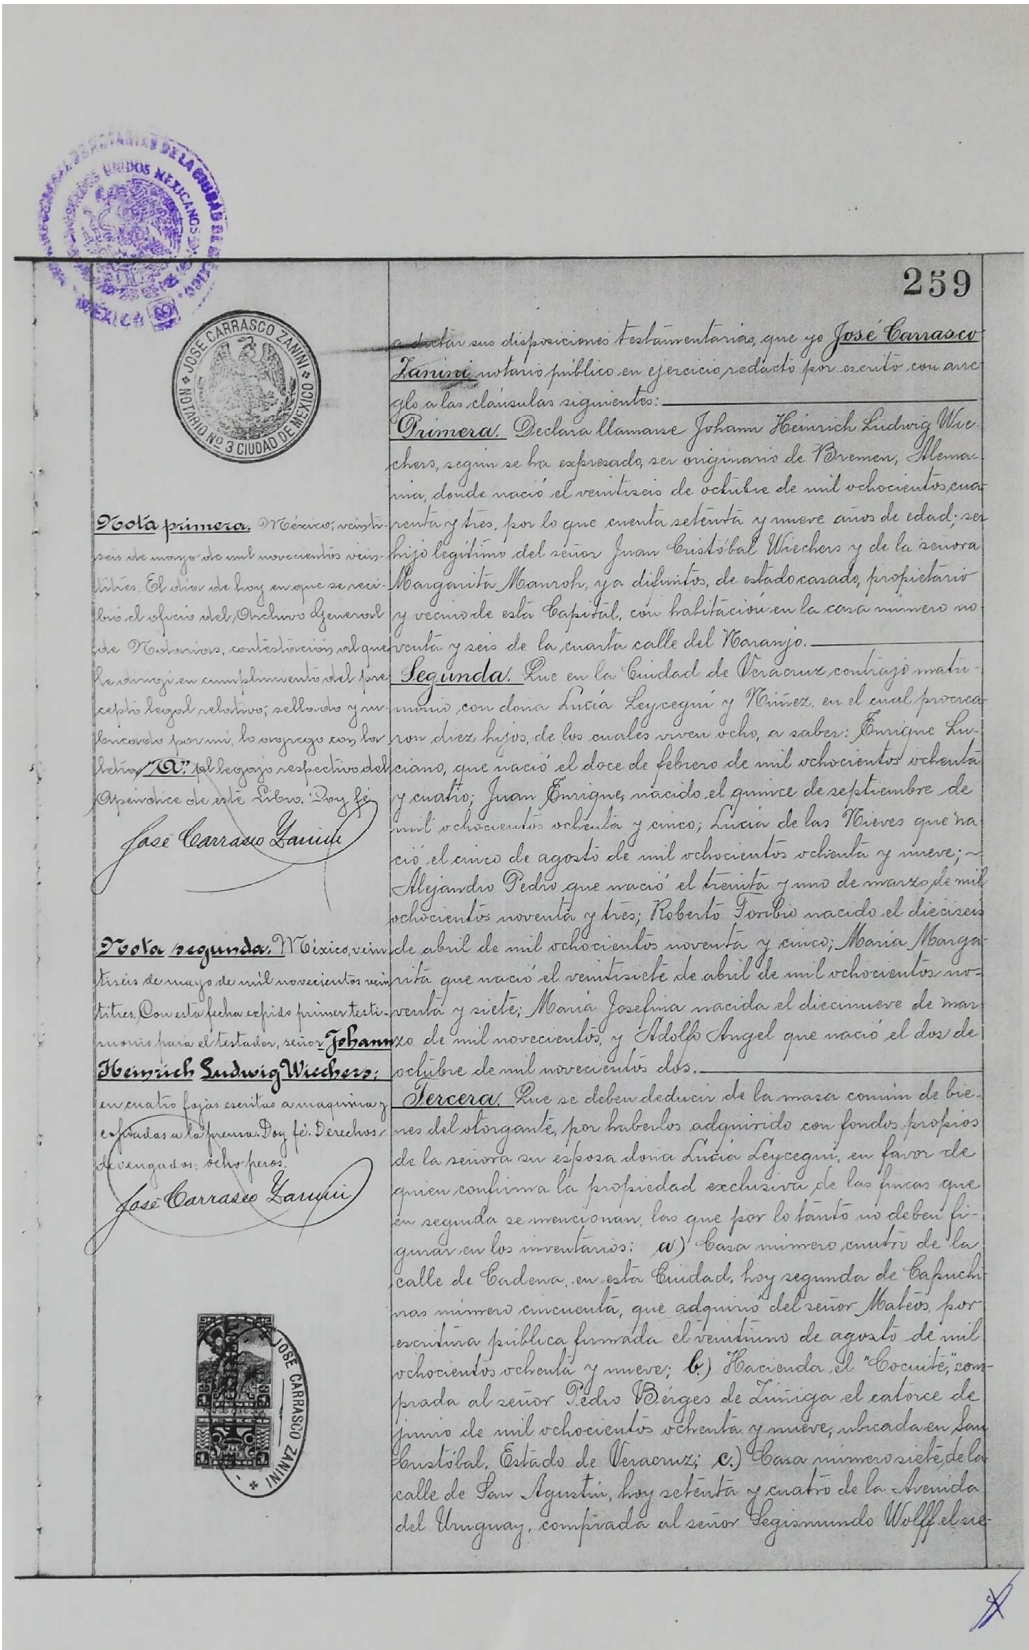 259
JOSE CARRASCO ZANINI
NOTARIO Nº 3 CIUDAD DE MEXICO
ESTADOS UNIDOS MEXICANOS
MEXICO
a dictar sus disposiciones testamentarias, que yo José Carrasco
Zanini notario público en ejercicio, redacto por escrito con arre-
glo a las cláusulas siguientes:
Primera. Declara llamarse Johann Heinrich Ludwig Wie-
chers, según se ha expresado, ser originario de Bremen, Alema-
nia, donde nació el veintiseis de octubre de mil ochocientos cua-
renta y tres, por lo que cuenta setenta y nueve años de edad; ser
hijo legítimo del señor Juan Cristóbal Wiechers y de la señora
Margarita Manroh, ya difuntos, de estado casado, propietario
y vecino de esta Capital, con habitación en la casa número no-
venta y seis de la cuarta calle del Naranjo.
Segunda. Que en la Ciudad de Veracruz contrajo matri-
monio con doña Lucía Leycegui y Núñez en el cual procrea-
ron diez hijos, de los cuales viven ocho, a saber: Enrique Lu-
ciano, que nació el doce de febrero de mil ochocientos ochenta
y cuatro; Juan Enrique, nacido el quince de septiembre de
mil ochocientos ochenta y cinco; Lucía de las Nieves que na-
ció el cinco de agosto de mil ochocientos ochenta y nueve;
Alejandro Pedro que nació el treinta y uno de marzo de mil
ochocientos noventa y tres; Roberto Toribio nacido el dieciseis
de abril de mil ochocientos noventa y cinco; María Marga-
rita que nació el veintisiete de abril de mil ochocientos no-
venta y siete; María Josefina nacida el diecinueve de mar-
zo de mil novecientos, y Adolfo Angel que nació el dos de
octubre de mil novecientos dos.
Tercera. Que se deben deducir de la masa común de bie-
nes del otorgante, por haberlos adquirido con fondos propios
de la señora su esposa doña Lucía Leycegui, en favor de
quien confirma la propiedad exclusiva, de las fincas que
en seguida se mencionan, las que por lo tanto no deben fi-
gurar en los inventarios: a) Casa número cuatro de la
calle de Cadena, en esta Ciudad, hoy segunda de Capuchi-
nas número cincuenta, que adquirió del señor Mateos, por
escritura pública firmada el veintiuno de agosto de mil
ochocientos ochenta y nueve; b.) Hacienda el "Cocuite," com-
prada al señor Pedro Bérges de Zúñiga el catorce de
junio de mil ochocientos ochenta y nueve, ubicada en San
Cristóbal, Estado de Veracruz; c.) Casa número siete, de la
calle de San Agustín, hoy setenta y cuatro de la Avenida
del Uruguay, comprada al señor Segismundo Wolff el sie-
Nota primera. México, veinti-
seis de mayo de mil novecientos vein-
titres. El día de hoy en que se reci-
bió el oficio del Archivo General
de Notarías, contestación al que
le dirigí en cumplimiento del pre-
cepto legal relativo; sellado y ru-
bricado por mí, lo agrego con la
letra al legajo respectivo del
Apéndice de este Libro. Doy fé.
José Carrasco Zanini
Nota segunda. México, vein-
tiseis de mayo de mil novecientos vein-
titres. Con esta fecha expido primer testi-
monio para el testador, señor Johann
Heinrich Ludwig Wiechers;
en cuatro fojas escritas a máquina y
a la prensa. Doy fé. Derechos
devengados: ocho pesos.
José Carrasco Zanini
JOSE CARRASCO ZANINI